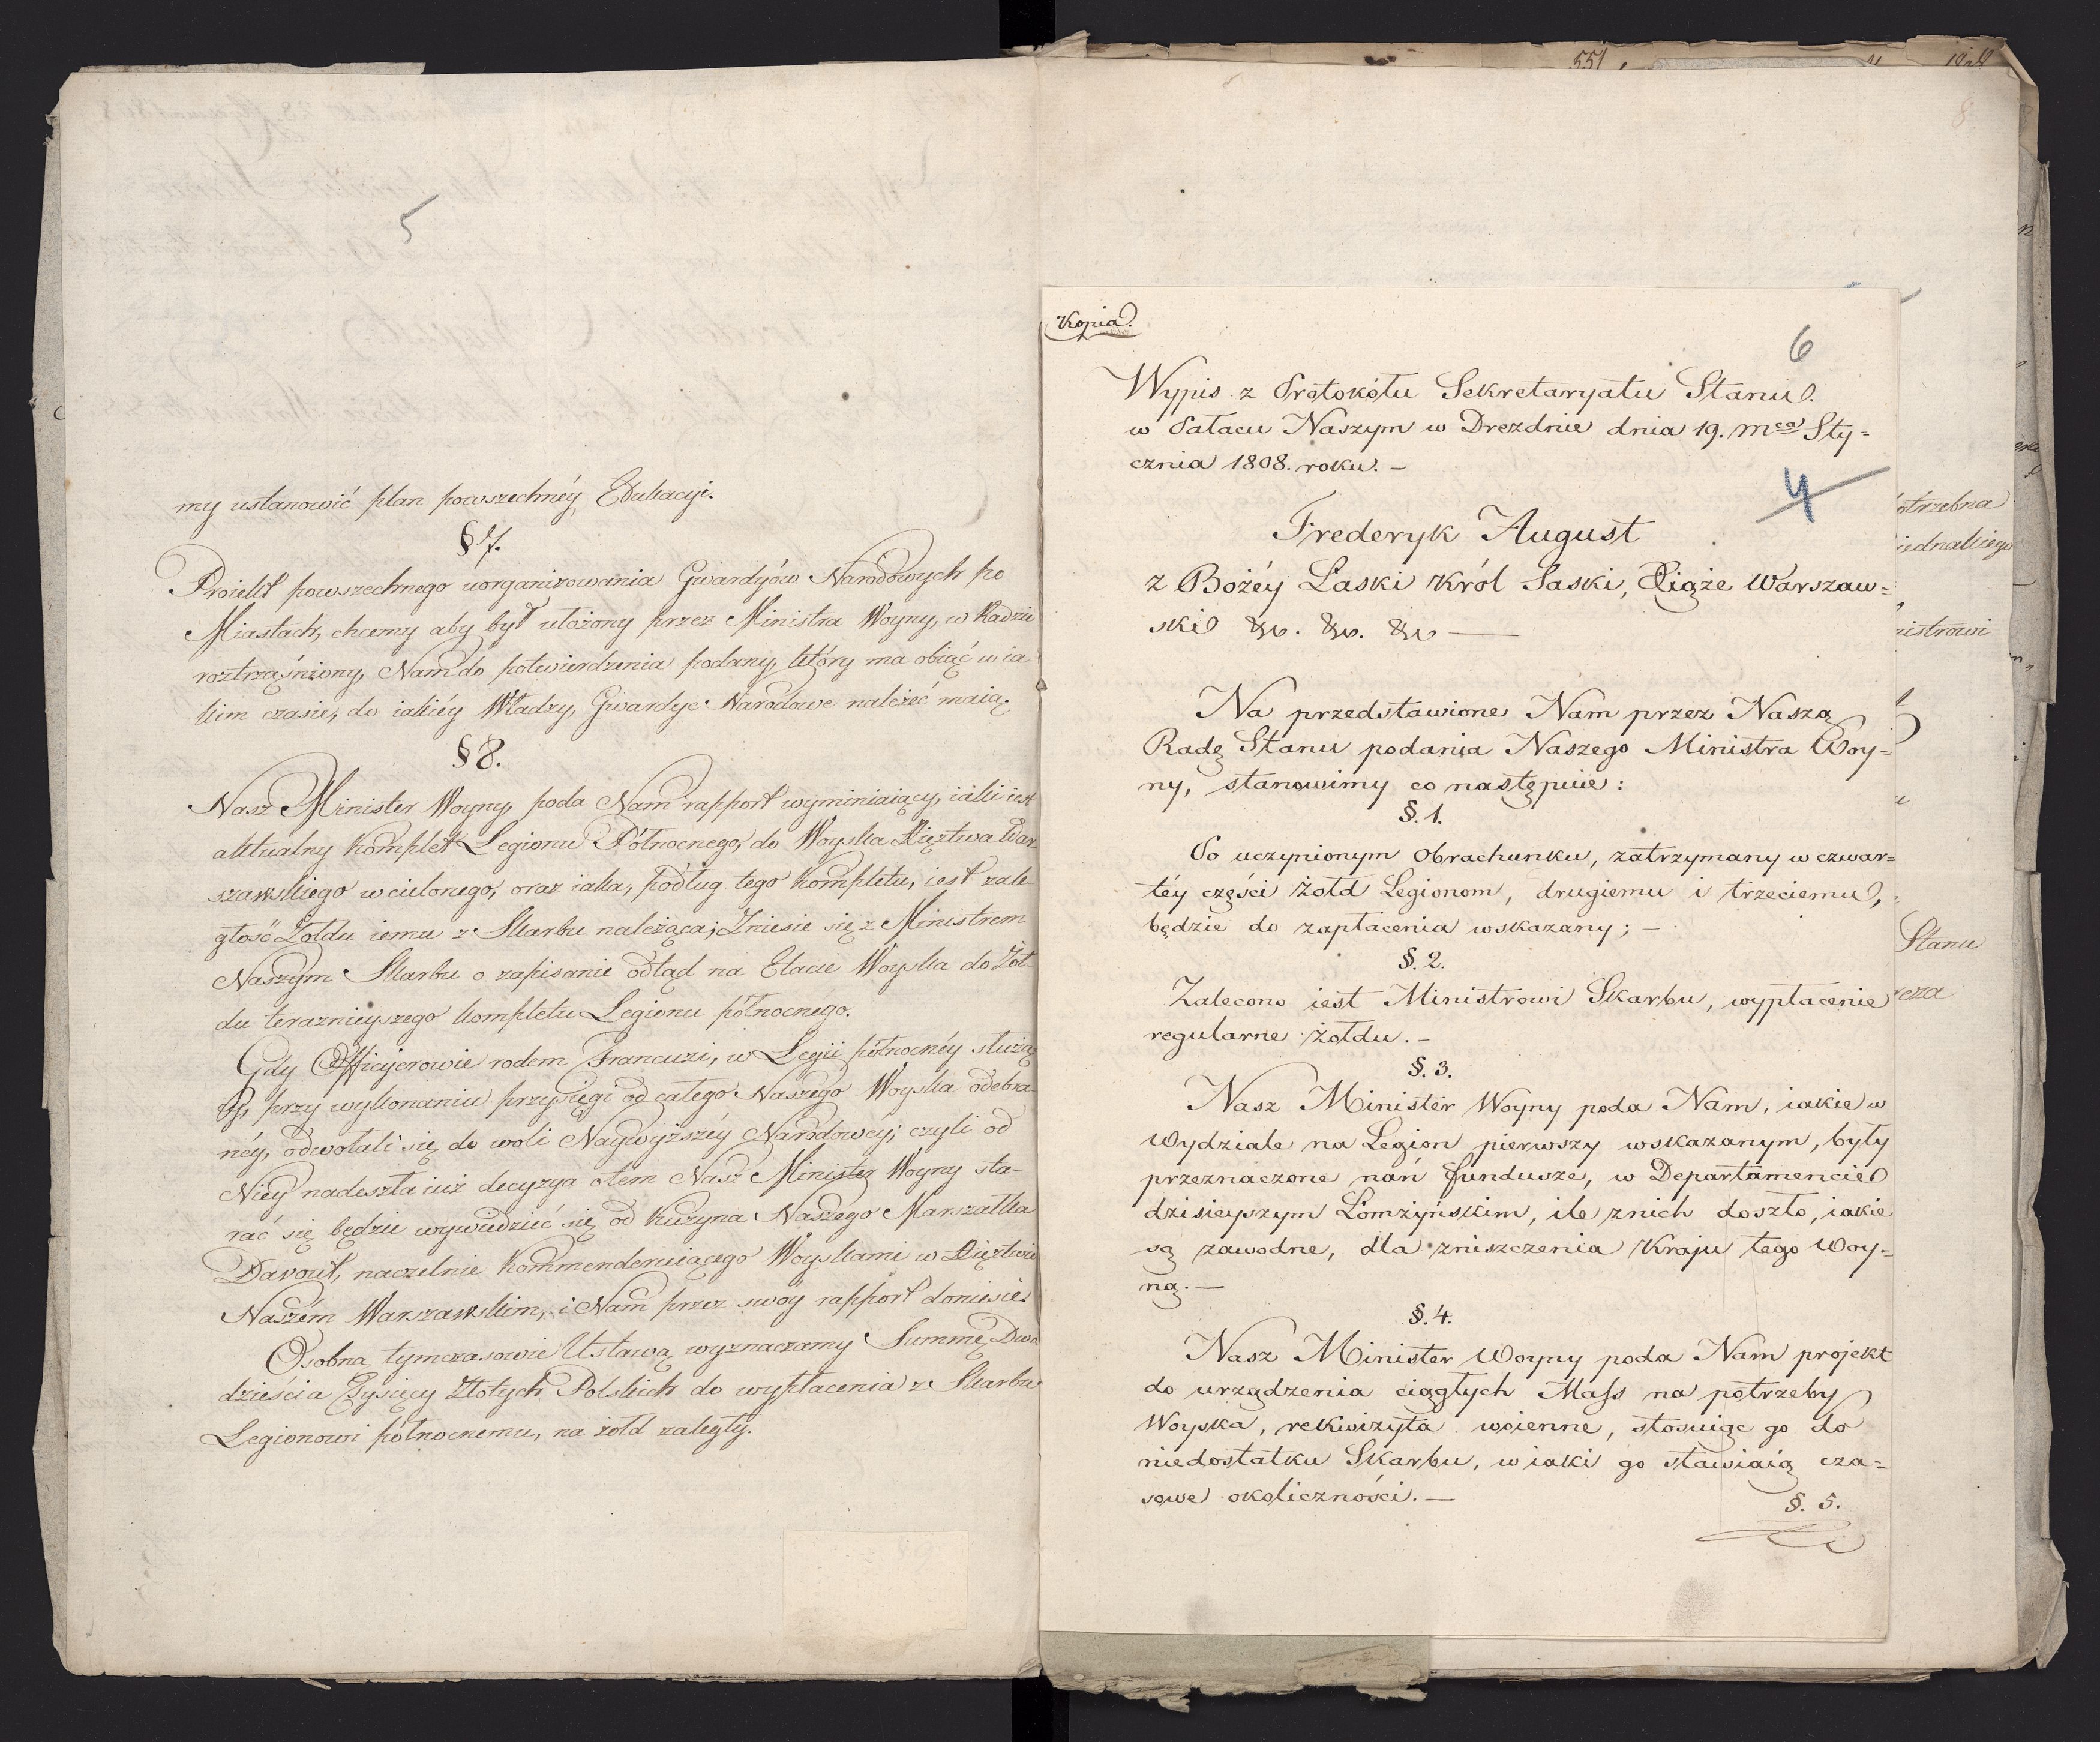 5
my ustanowić plan powszechnéy Edukacyi.
§ 7.
Proiekt powszechnego uorganizowania Gwardyów Narodowych po
Miastach, chcemy aby był ułożony przez Ministra Woyny, w Radzie
roztrząśniony, Nam do potwierdzenia podany, który ma obiąć w ia
kim czasie, do iakiéy Władzy, Gwardye Narodowe należeć maią.
§ 8.
Nasz Minister Woyny, poda Nam rapport wyminiaiący, iaki iest
aktualny Komplet Legionu Północnego, do Woyska Xięztwa War
szawskiego wcielonego, oraz iaka, podług tego Kompletu, iest zale
głość Żołdu iemu z Skarbu należąca; Zniesie się z Ministrem
Naszym Skarbu o zapisanie odtąd na Etacie Woyska do Żoł-
du teraznieyszego kompletu Legionu północnego.
Gdy Officyerowie rodem Francuzi, w Legii północnéy służą
cy, przy wykonaniu przysięgi od całego Naszego Woyska odebra
néy, odwołali się do woli Naywyższéy Narodowey; czyli od
Niey nadeszła iuż decyzya o tem Nasz Minister Woyny sta-
rać się będzie wywiedzieć się od Kuzyna Naszego Marszałka
Davout, naczelnie Kommenderuiącego Woyskami w Xięztwie
Naszém Warszawskim, i Nam przez swóy rapport doniesie.
Osobną tymczasowie Ustawą wyznaczamy Summę Dwa
dzieścia Tysięcy Złotych Polskich do wypłacenia z Skarbu
Legionowi północnemu, na żołd zaległy.
551
8
Kopia.
6
Wypis z Protokółu Sekretaryatu Stanu.
w Pałacu Naszym w Dreznie dnia 19. mca Sty=
cznia 1808. roku. –
4
Frederyk August
z Bożéy Łaski Król Saski, Xiąże Warszaw=
ski &c. &c. &c —
Na przedstawione Nam przez Naszą
Radę Stanu podania Naszego Ministra Woy=
ny, stanowimy co następuie:
§. 1.
Po uczynionym Obrachunku, zatrzymany w czwar=
téy części żołd Legionom, drugiemu i trzeciemu,
będzie do zapłacenia wskazany; –
§. 2.
Zalecono iest Ministrowi Skarbu, wypłacenie
regularne żołdu. –
§. 3.
Nasz Minister Woyny poda Nam, iakie w
Wydziale na Legion pierwszy wskazanym, były
przeznaczone nań fundusze, w Departamencie
dzisieyszym Łomżyńskim, ile z nich doszło, iakie
są zawodne, dla zniszczenia Kraju tego Woy=
ną. –
§. 4.
Nasz Minister Woyny poda Nam projekt
do urządzenia ciągłych Mass na potrzeby
Woyska, rekwizyta woienne, stosuiąc go do
niedostatku Skarbu, w iaki go stawiaią cza=
sowe okoliczności. –
§. 5.
otrzebna
iednakiego
nistrowi
Stanu
cza